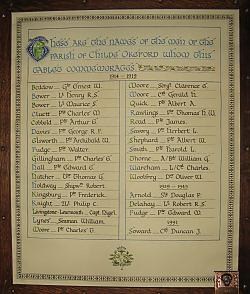 These are the names of the men of the
parish of Childe Okeford whom this
tablet commemorates.
1914 - 1919
Beddow — Gnr Ernest W.
Bower — Lt Henry R.S.
Bower — Lt Maurice S.
Cluett — Pte Charles W.
Cobbold — Pte Arthur G.
Davies — Pte George R.F.
Elsworth — Pte Archibald W.
Fudge — Pte Walter
Gillingham — Pte Charles G.
Hall — Pte Edward G.
Hatcher — Pte Thomas G.
Holdway — Robert
Kingsbury — Pte Frederick
Knight — Philip C.
Livingstone-Learmonth — Capt. Nigel
Lynes — Seaman William
Moore — Pte Charles
Moore — Clarence C.
Moore — Gerald N.
Quick — Pte Albert A.
Rawlings — Pte Thomas H. W.
Read — Pte James
Savory — Pte Herbert L.
Shepherd — Pte Albert
Smith — Pte Harold L.
Thorne — A/Br William G.
Wareham — Charles
Woolfrey — Oliver W.
1939 - 1945
Arnold — Douglas P.
Delahay — Lt Robert R.S.
Fudge — Pte Edward W.
Soward — Duncan J.